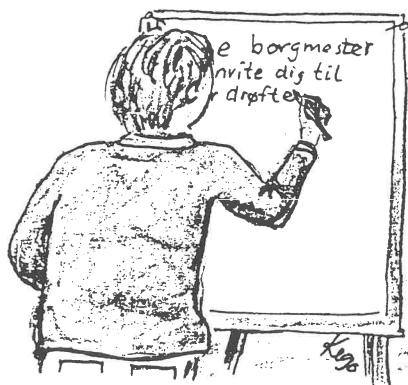 e borgmester
nvite dig til
r drøfte
Kego